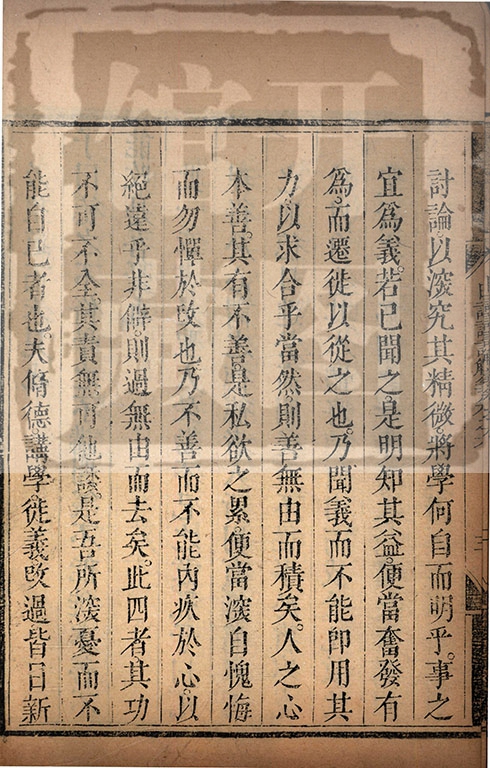 討論。以深究其精微。將學何自而明乎。事之
宜為義。若已聞之。是明知其益。便當奮發有
為。而遷徙以從之也。乃聞義而不能即用其
力。以求合乎當然。則善無由而積矣。人之心
本善。其有不善。是私欲之累。便當深自愧悔
而勿憚於改也。乃不善而不能內疚於心。以
絕遠乎非僻。則過無由而去矣。此四者其功
不可不全。其責無可他諉。是吾所深憂而不
能自已者也。夫脩德講學。徙義改過。皆日新